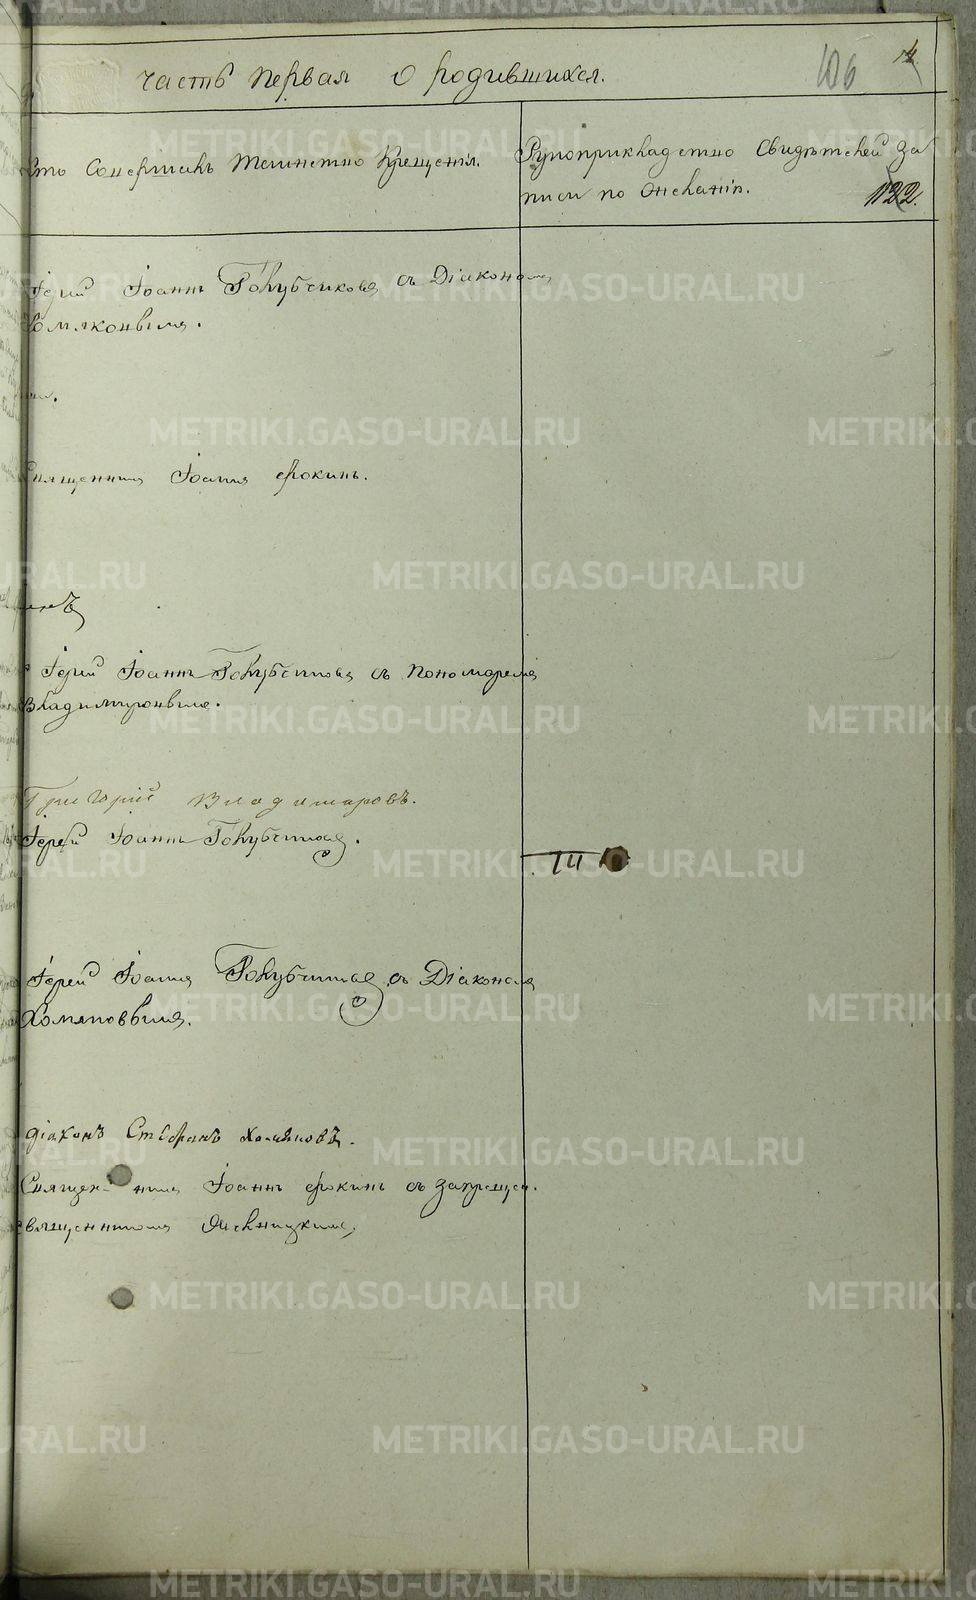 часть первая о родившихся.
106
Кто Совершалъ Таинство Крещенія.
Рукоприкладство Свидѣтелей за
писи по Желанію.
122.
Іерей Іоаннъ Голубчиковъ съ Діакономъ
Хомяковымъ.
Священникъ Іоаннъ Фокинъ.
Іерей Іоаннъ Голубчиковъ съ Пономаремъ
Владимировымъ.
Григорій Владимировъ.
Іерей Іоаннъ Голубчиковъ.
Іерей Іоаннъ Голубчиковъ съ Діакономъ
Хомяковымъ.
діаконъ Стефанъ Хомяковъ.
Священникъ Іоаннъ Фокинъ съ запрещен.
METRIKI.GASO-URAL.RU